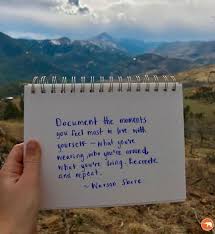 Document the moments
you feel most in love with
yourself - what you're
wearing, who you're around,
what you're doing. Recreate
and repeat.
~ Warsan Shire